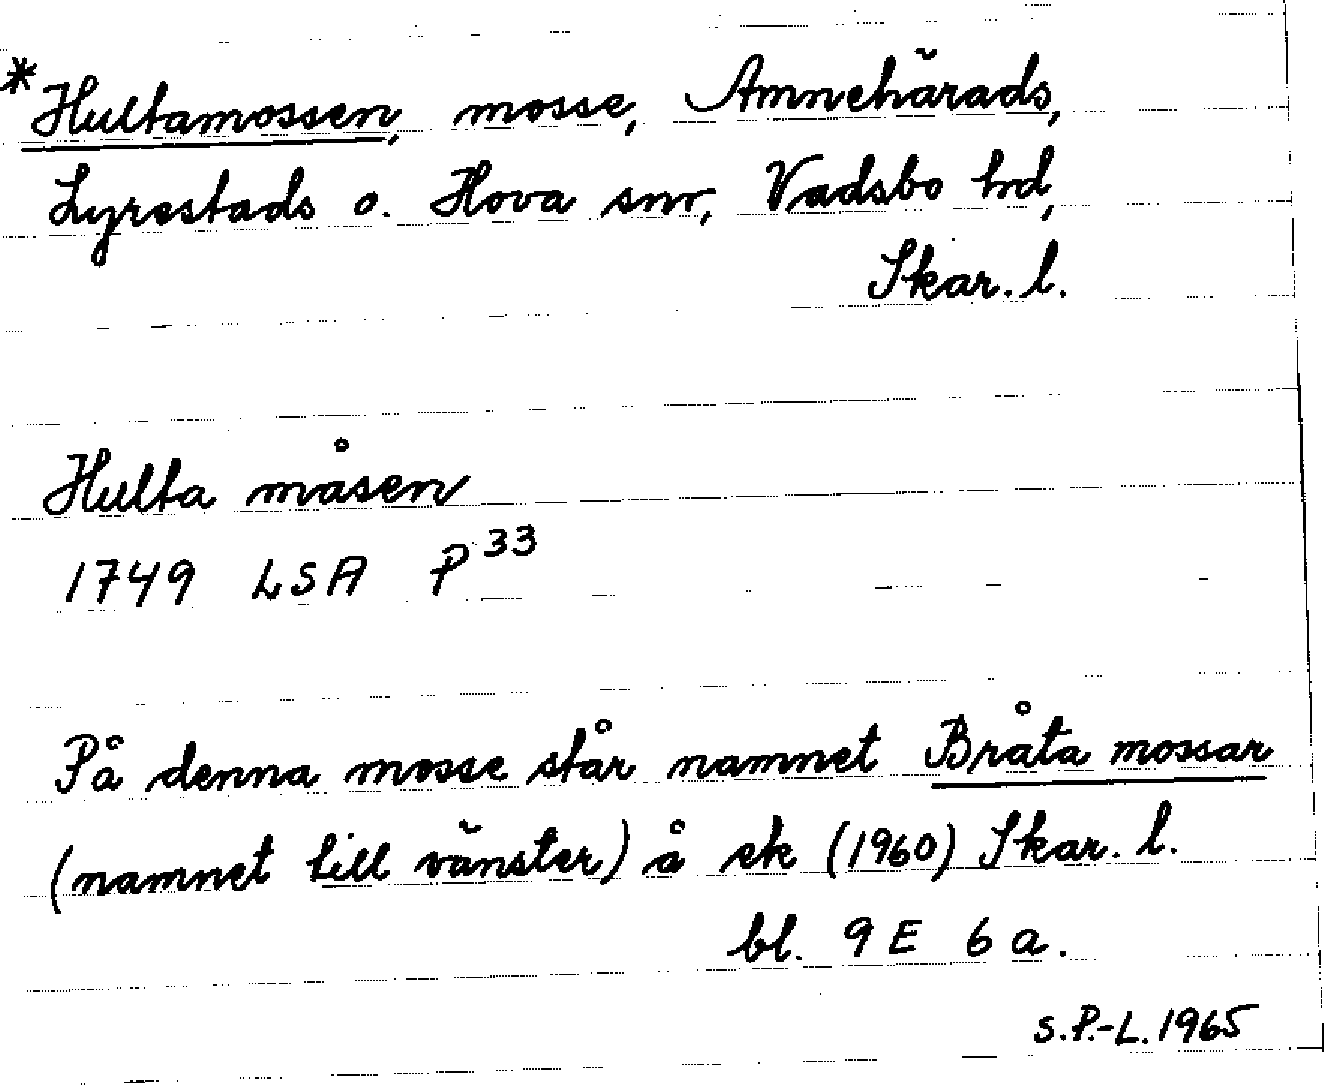 *Hultamossen, mosse, Amnehärads,
Lyrestads o. Hova snr, Vadsbo hd,
Skar. l.
Hulta måsen
1749 LSA P 33
På denna mosse står namnet Bråta mossar
(namnet till vänster) å ek (1960) Skar. l.
bl. 9 E 6 a.
S.P.-L. 1965